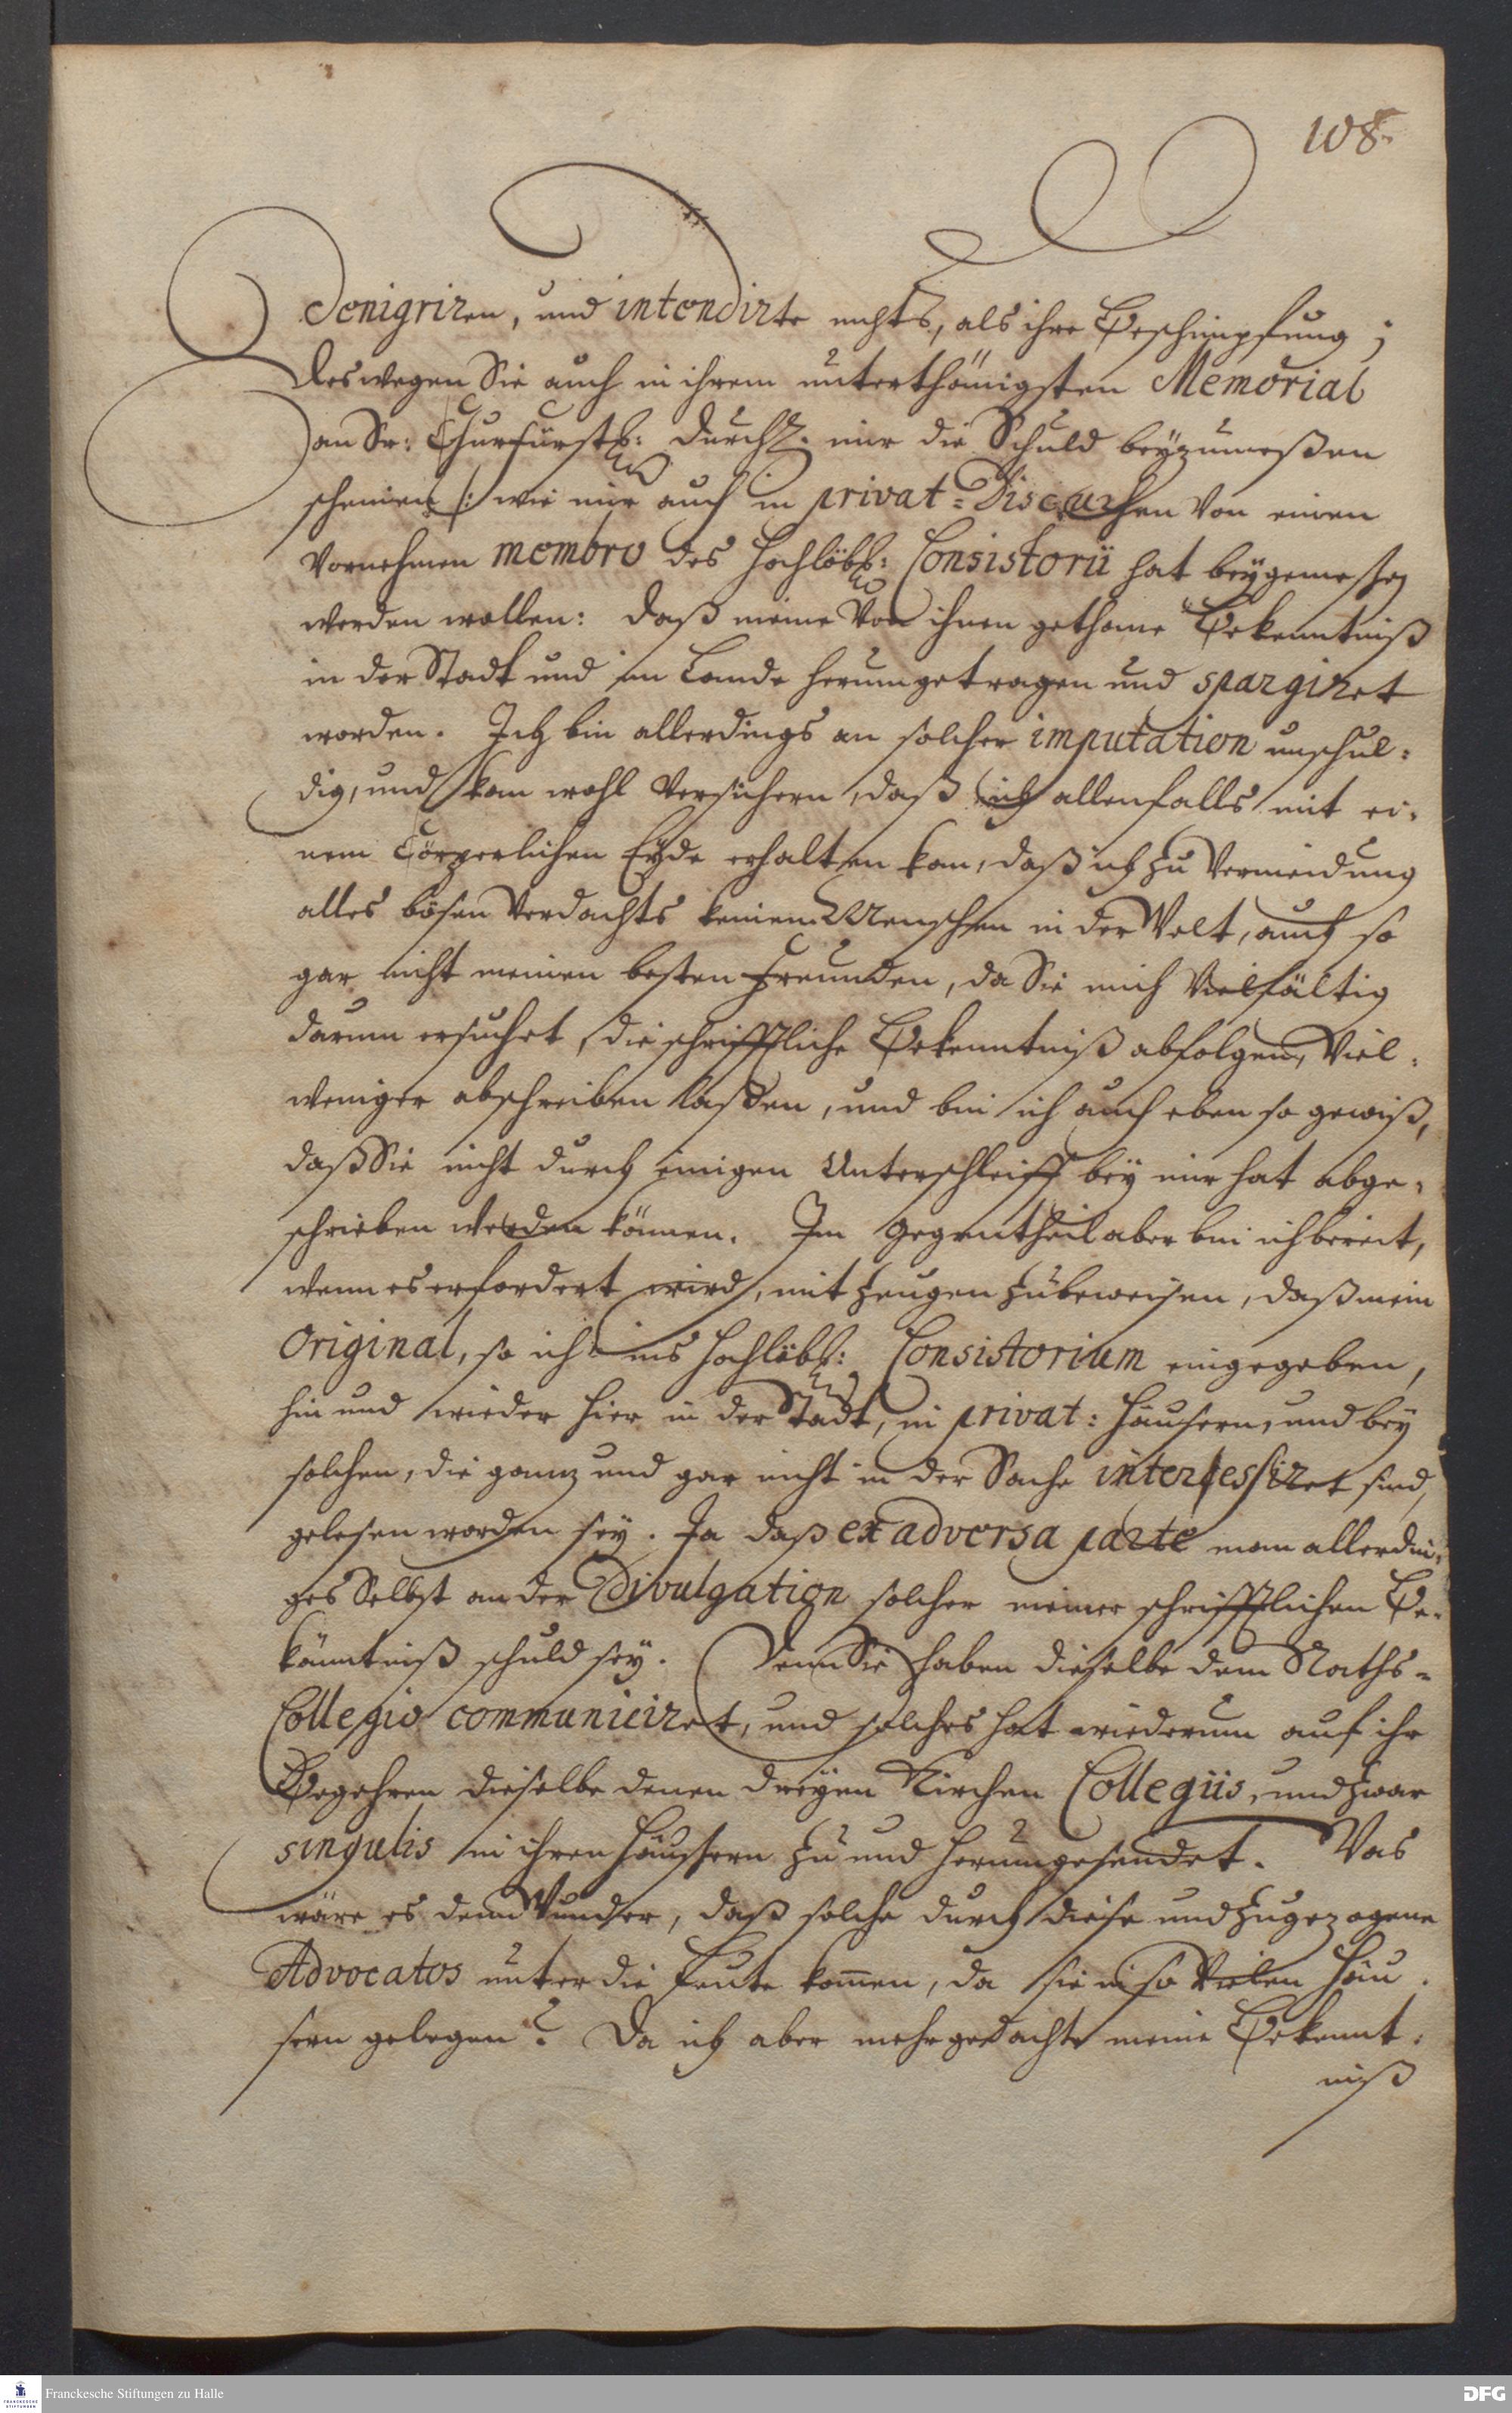 108.
denigriren, und intendirte nichts, als ihre Beschimpfung;
Deswegen Sie auch in ihrem unterthänigsten Memorial
an Sr: Churfürstl: Durchl. mir die Schuld beyzumeßen
scheinen /: wie mir auch in privat-Discursen von einen
Vornehmen membro des Hochlöbl: Consistorii hat beygemeßen
werden wollen: daß meine von ihnen gethane Bekenntniß
in der Stadt und im Lande herumgetragen und spargiret
worden. Ich bin allerdings an solcher imputation unschul-
dig, und kan wohl versichern, daß ich allenfalls mit ei-
nem Cörperlichen Eyde erhalten kan, daß ich zu Vermeidung
alles bösen Verdachts keinem Menschen in der Welt, auch so
gar nicht meinen besten Freunden, da Sie mich Vielfältig
darum ersuchet, die schrifftliche Bekenntniß abfolgen, Viel-
weniger abschreiben laßen, und bin ich auch eben so gewiß,
daß Sie nicht durch einigen Unterschleiff bey mir hat abge-
schrieben werden können. Im Gegentheil aber bin ich bereit,
wenn es erfordert wird, mit Zeugen zu beweisen, daß mein
Original, so ich ins Hochlöbl: Consistorium eingegeben,
hin und wieder hier in der Stadt, in privat-Häusern, und bey
solchen, die ganz und gar nicht in der Sache interessiret sind,
gelesen worden sey. Ja daß ex adversa parte man allerdin-
ges Selbst an der Divulgation solcher meiner schrifftlichen Be-
känntniß schuld sey. Denn Sie haben dieselbe dem Raths-
Collegio communiciret, und solches hat wiederum auf ihr
Begehren dieselbe denen dreyen Kirchen Collegiis, und zwar
singulis in ihren Häussern zu und herumgesendet. Was
wäre es denn Wunder, daß solche durch diese und zugezogene
Advocatos unter die Leute kom̄en, da sie in so Vielen Häu-
sern gelegen? Da ich aber mehrgedachte meine Bekennt-
niß
Franckesche Stiftungen zu Halle
DFG